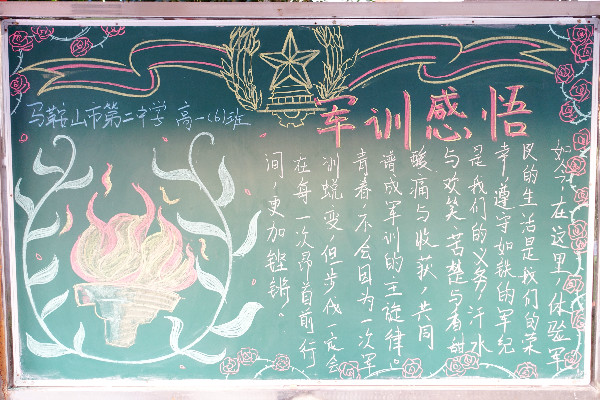 马鞍山市第二中学 高一(6)班
军训感悟
如今，在这里，体验军
民的生活是我们的荣
幸，遵守如铁的军纪
是我们的义务，汗水
与欢笑，苦楚与香甜
酸痛与收获，共同
谱成军训的主旋律。
青春不会因为一次军
训蜕变，但步伐一定会
在每一次昂首前行
间，更加铿锵。